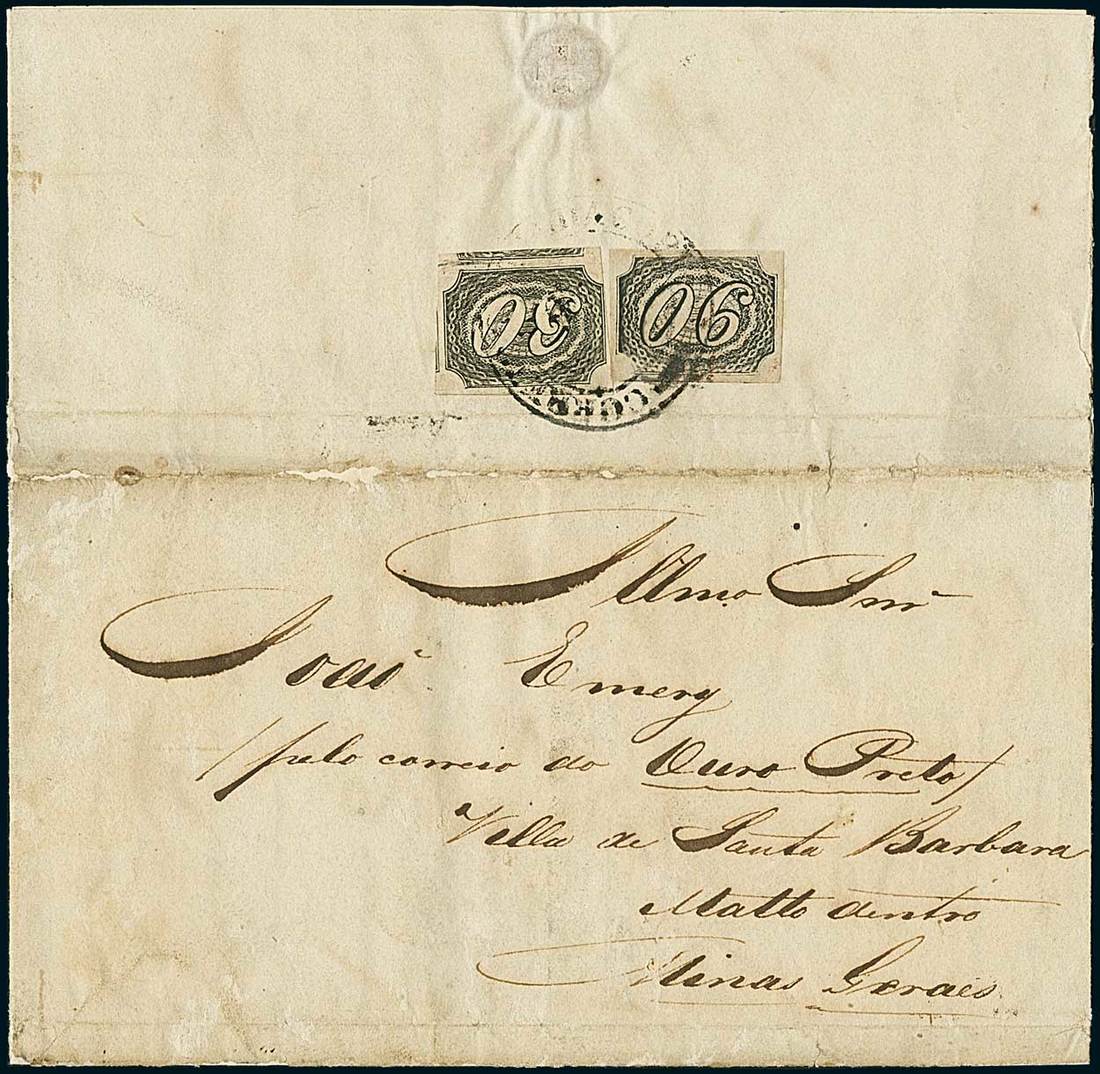 30 90
Illmo Snr
Joaõ Emery
/pelo correio do Ouro Preto/
Villa de Santa Barbara
Matto dentro
Minas Geraes